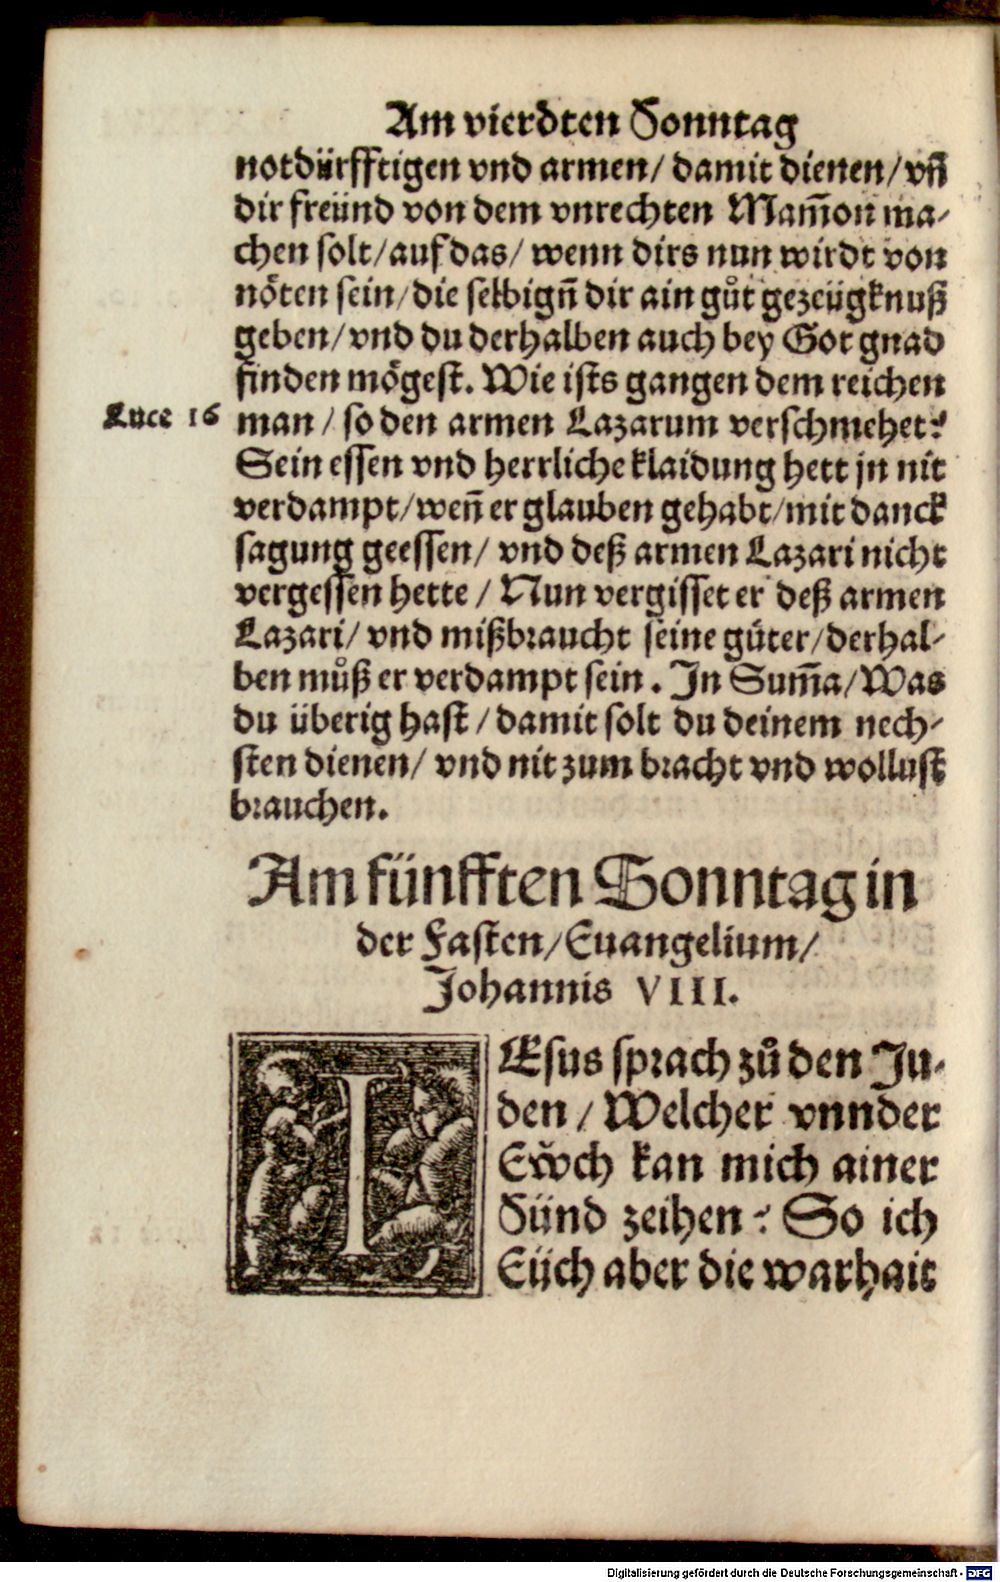 Am vierdten Sonntag
notdürfftigen vnd armen/ damit dienen/ vñ
dir freünd von dem vnrechten Mam̃on ma-
chen solt/ auf das/ wenn dirs nun wirdt von
nöten sein/ die selbigñ dir ain gůt gezeügknuß
geben/ vnd du derhalben auch bey Got gnad
finden mögest. Wie ists gangen dem reichen
Luce 16
man/ so den armen Lazarum verschmehet?
Sein essen vnd herrliche klaidung hett jn nit
verdampt/ weñ er glauben gehabt/ mit danck
sagung geessen/ vnd deß armen Lazari nicht
vergessen hette/ Nun vergisset er deß armen
Lazari/ vnd mißbraucht seine güter/ derhal-
ben můß er verdampt sein. In Sum̃a/ Was
du überig hast/ damit solt du deinem nech-
sten dienen/ vnd nit zum bracht vnd wollust
brauchen.
Am fünfften Sonntag in
der Fasten/ Euangelium/
Johannis VIII.
IEsus sprach zů den Ju-
den/ Welcher vnnder
Ew̌ch kan mich ainer
Sünd zeihen? So ich
Eüch aber die warhait
Digitalisierung gefördert durch die Deutsche Forschungsgemeinschaft - DFG